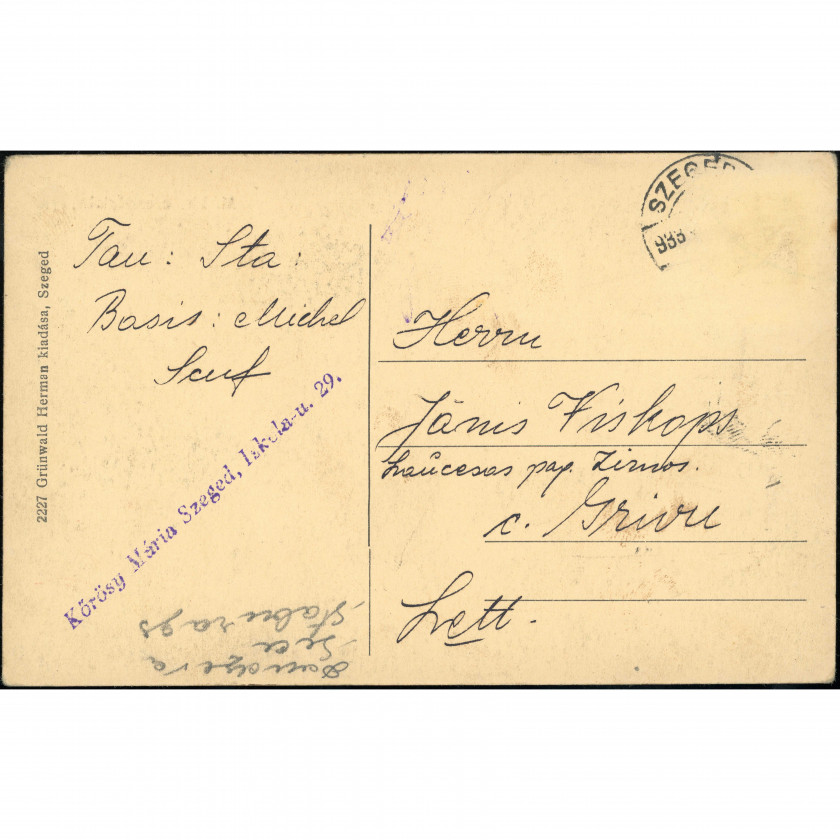 SZEGED
933
2227 Grünwald Herman kiadása, Szeged
Tau: Sta:
Basis: Michel
Kőrösy Mária Szeged, Iskola-u. 29.
Herrn
Jānis Viskops
Laucesas pag. Zirnos.
c. Grivu
Lett.
Staburags